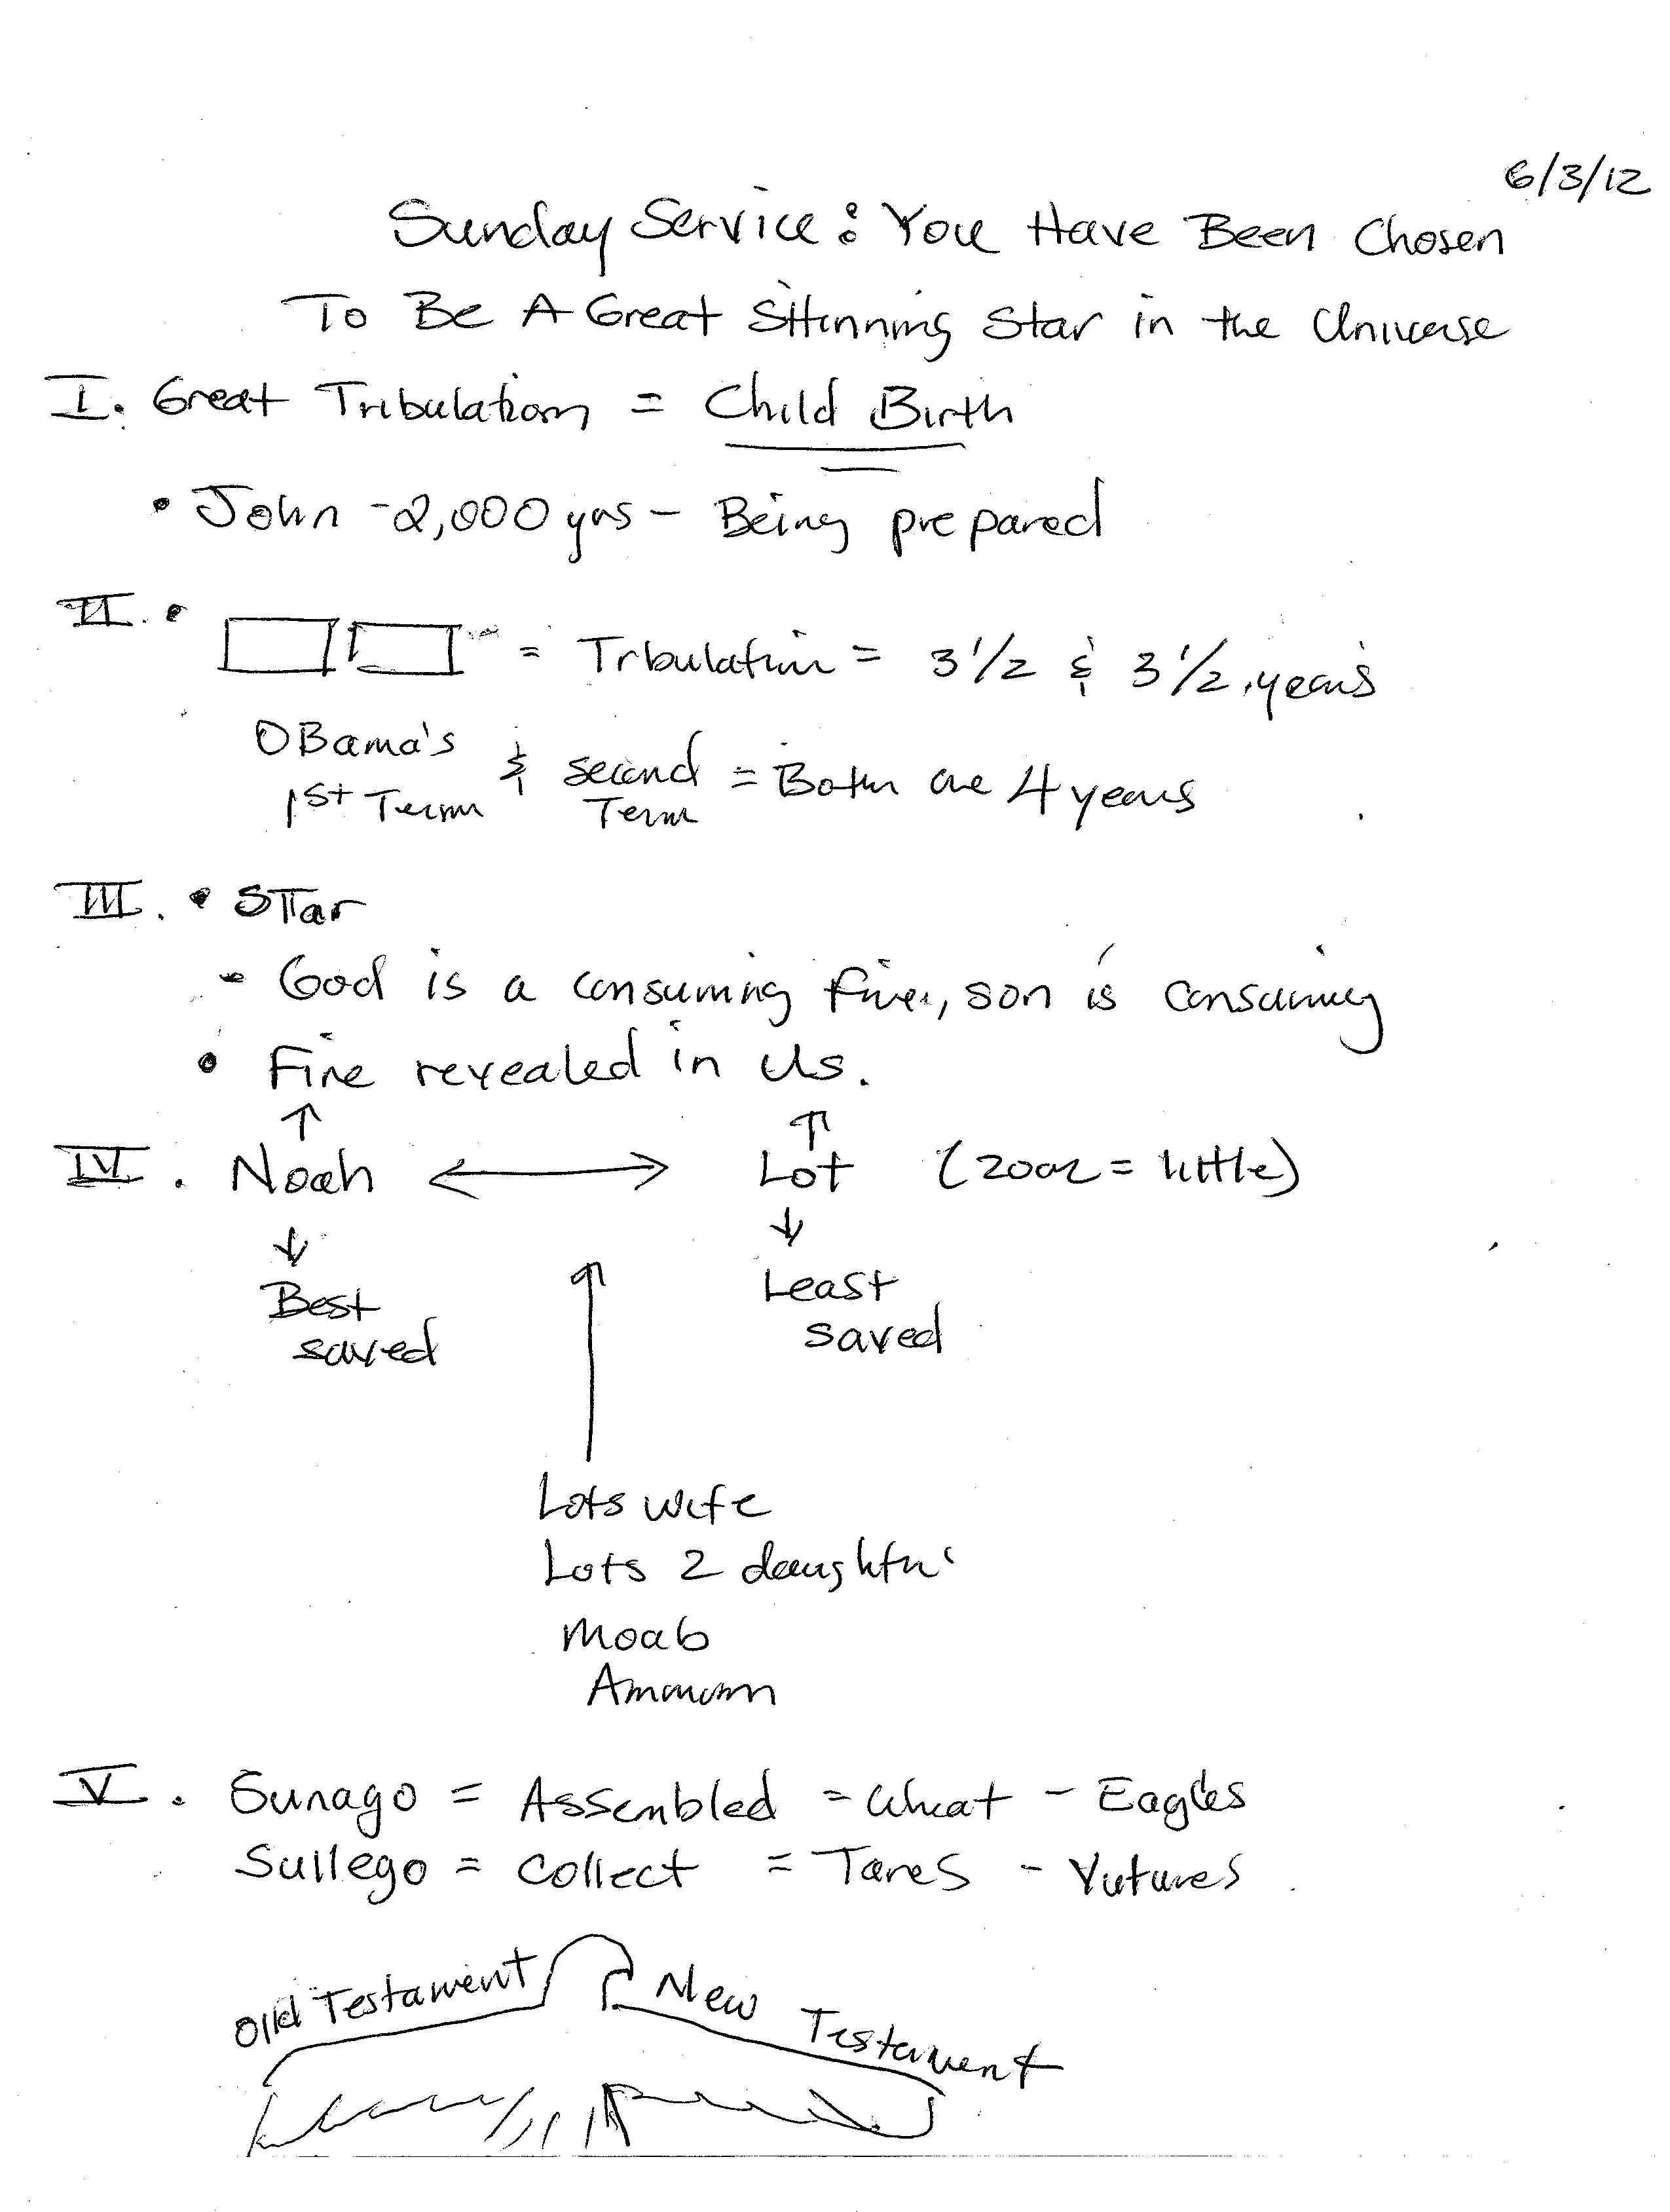 6/3/12
Sunday Service: You Have Been Chosen
To Be A Great SHinning Star in the Universe
I. Great Tribulation = Child Birth
• John - 2,000 yrs - Being prepared
II. • = Tribulation = 3 1/2 & 3 1/2 years
OBama's & second = Both are 4 years
1st Term Term
III. • STar
- God is a consuming fire, son is consuming
• Fire revealed in us.
↑ ↑
IV. Noah ⟷ Lot (zoar = little)
↓ ↓
Best Least
saved saved
↑
Lots wife
Lots 2 daughter
Moab
Ammon
V. Sunago = Assembled = Wheat - Eagles
Sullego = Collect = Tares - Vutures
Old Testament New Testament